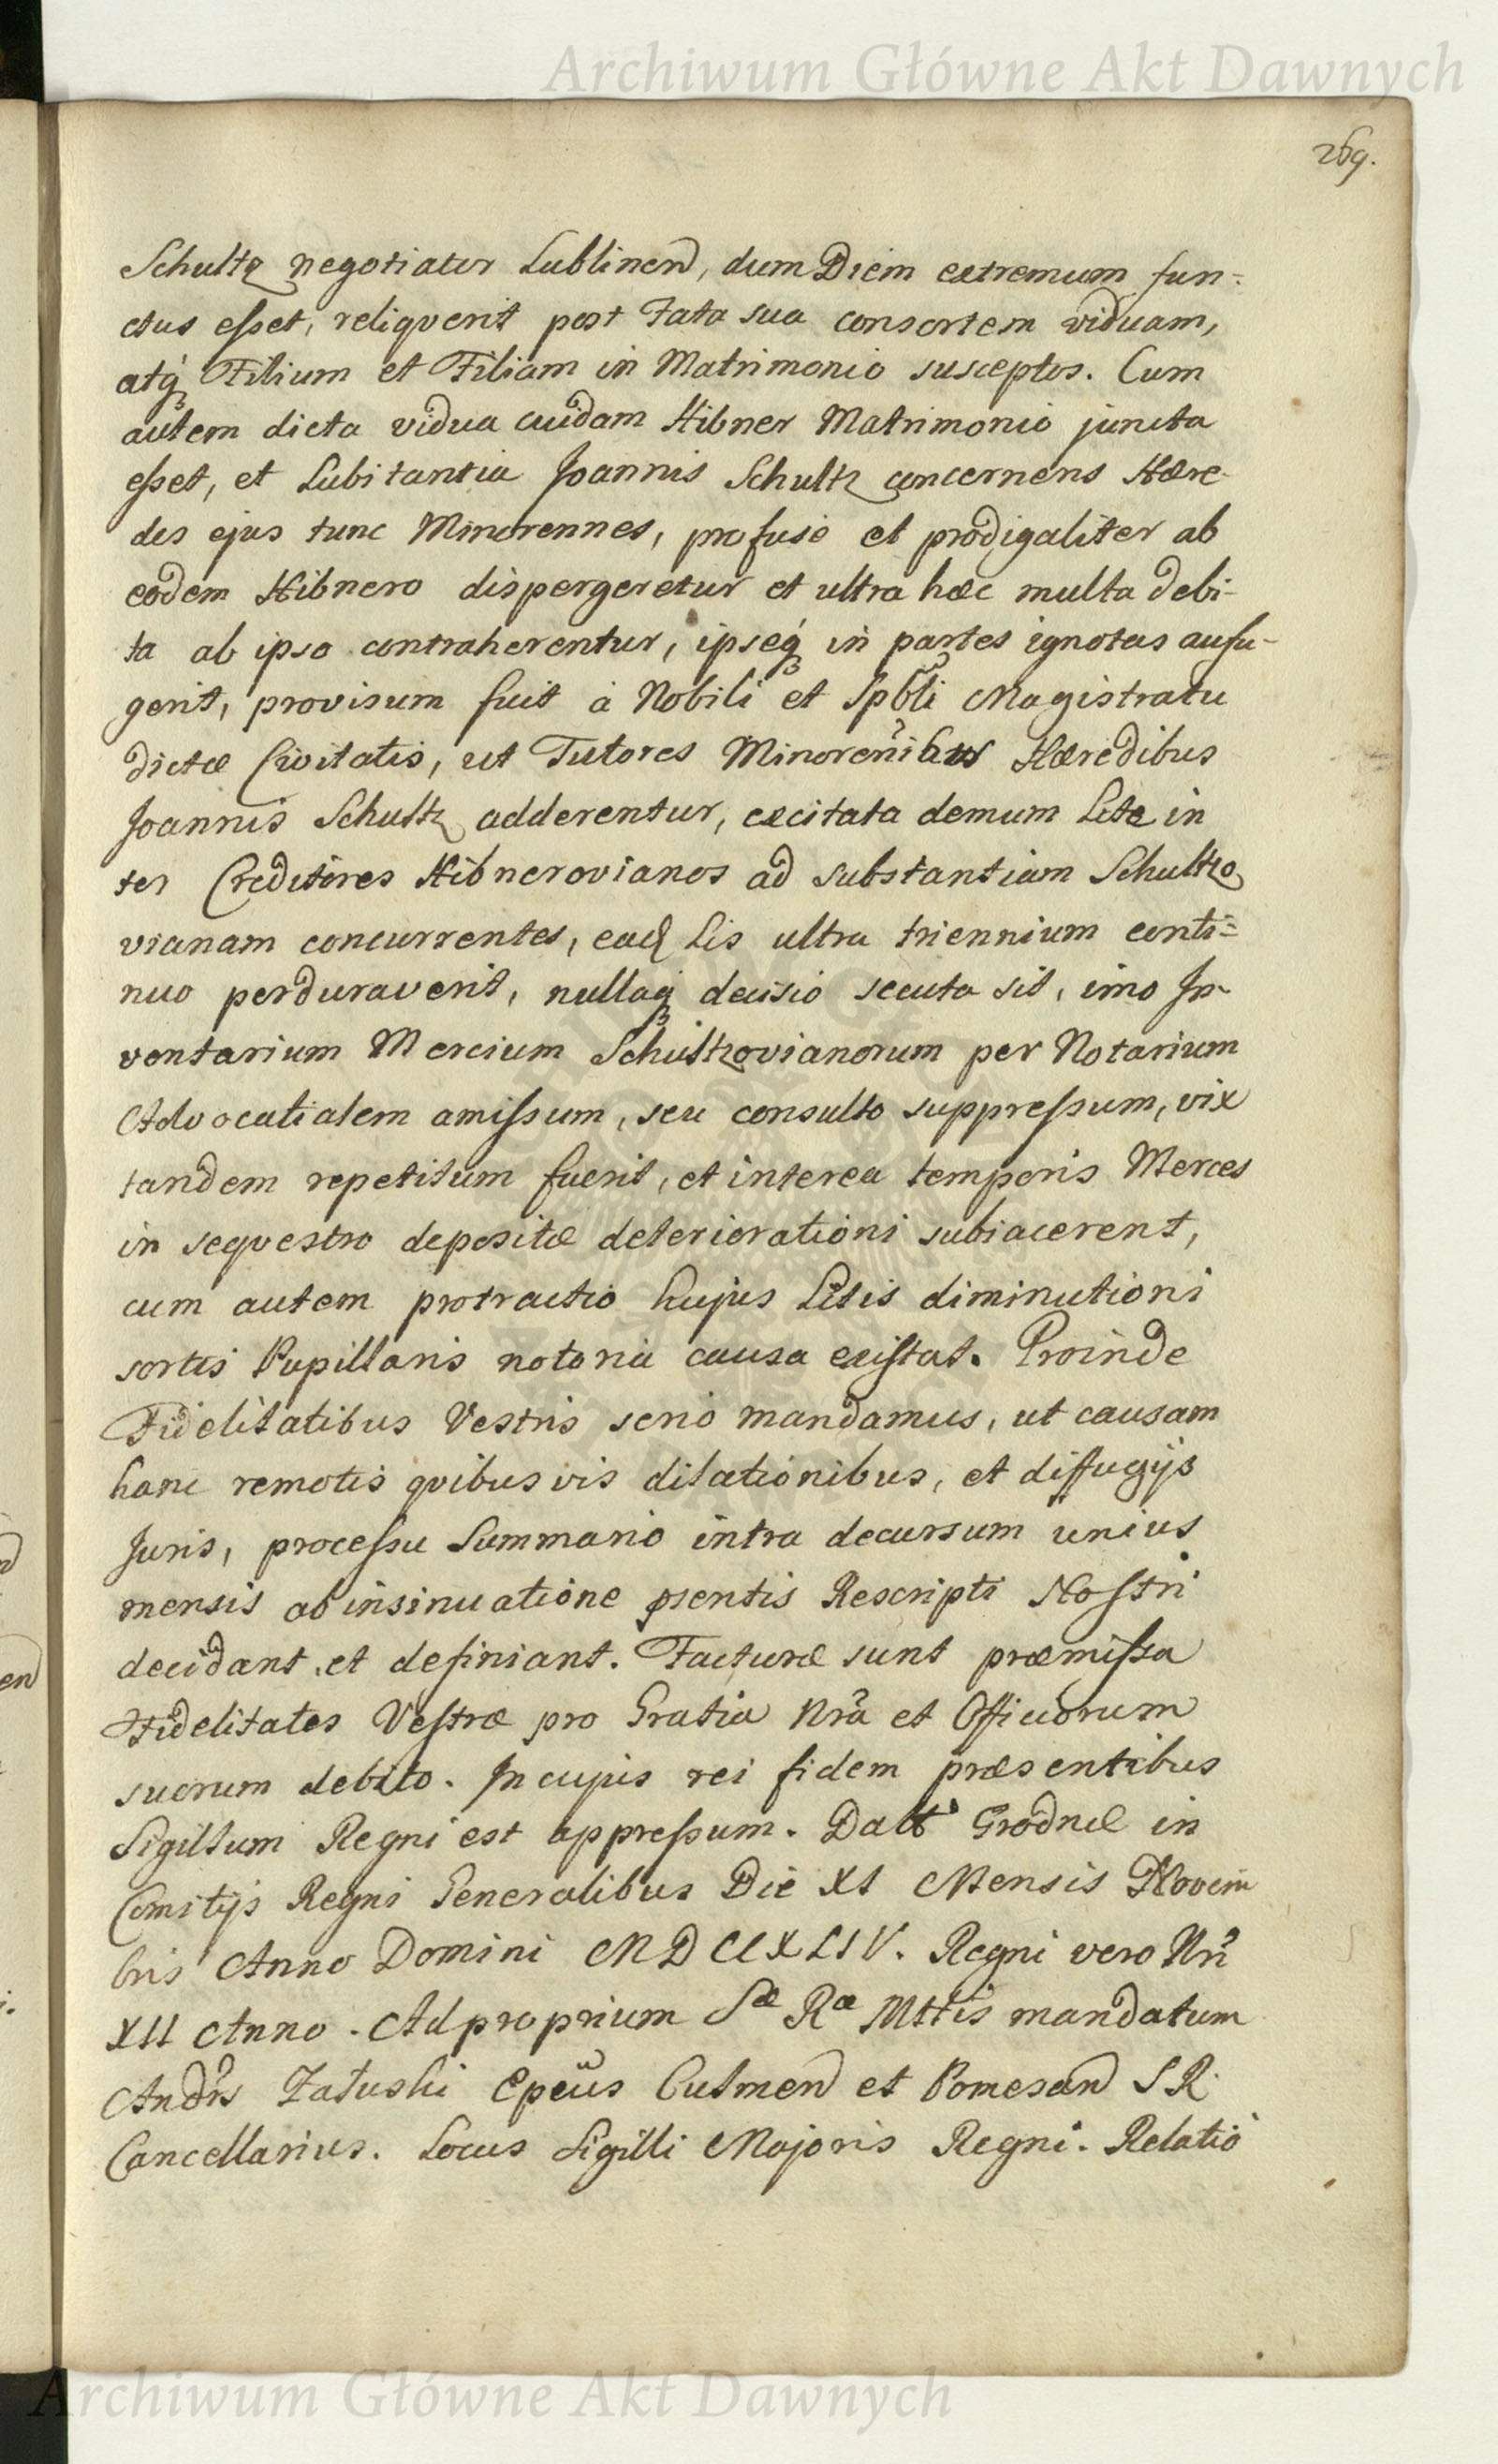 Archiwum Główne Akt Dawnych
269.
Schultz negotiator Lublinen, dum Diem extremum fun-
ctus esset, reliqverit post Fata sua consortem viduam,
atq; Filium et Filiam in Matrimonio susceptos. Cum
autem dicta vidua cuidam Hibner Matrimonio juncta
esset, et Substantia Joannis Schultz concernens Hære-
des ejus tunc Minorennes, profuse et prodigaliter ab
eodem Hibnero dispergeretur et ultra hæc multa debi-
ta ab ipso contraherentur, ipseq; in partes ignotas aufu-
gerit, provisum fuit à Nobili et Spbli Magistratu
dictæ Civitatis, ut Tutores Minorenibus Hæredibus
Joannis Schultz adderentur, excitata demum Lite in
ter Creditores Hibnerovianos ad substantiam Schultzo
vianam concurrentes, eaq Lis ultra triennium conti-
nuo perduraverit, nullaq; decisio secuta sit, imo In-
ventarium Mercium Schultzovianorum per Notarium
Advocatialem amissum, seu consulto suppressum, vix
tandem repetitum fuerit, et interea temporis Merces
in seqvestro depositæ deteriorationi subiacerent,
cum autem protractio hujus Litis diminutioni
sortis Pupillaris notoria causa existat. Proinde
Fidelitatibus Vestris serio mandamus, ut causam
hanc remotis qvibusvis dilationibus, et diffugijs
Juris, processu Summario intra decursum unius
mensis ab insinuatione psentis Rescripti Nostri
decidant et definiant. Facturæ sunt præmissa
Fidelitates Vestræ pro Gratia Nrã et Officiorum
suorum debito. In cujus rei fidem præsentibus
Sigillum Regni est appressum. Datt Grodnæ in
Comitijs Regni Generalibus Die XI Mensis Novem
bris Anno Domini MDCCXLIV. Regni vero Nri
XII Anno. Ad proprium Sæ Ræ Mttis mandatum
Andrs Załuski Epcus Culmen et Pomesan S R.
Cancellarius. Locus Sigilli Majoris Regni. Relatio
Archiwum Główne Akt Dawnych